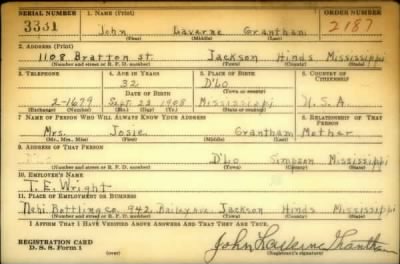 SERIAL NUMBER 1. NAME (Print) ORDER NUMBER
3331 John Laverne Grantham 2187
(First) (Middle) (Last)
2. ADDRESS (Print)
1108 Bratton St. Jackson Hinds Mississippi
(Number and street or R. F. D. number) (Town) (County) (State)
3. TELEPHONE 4. AGE IN YEARS 5. PLACE OF BIRTH 6. COUNTRY OF CITIZENSHIP
32 D'Lo
DATE OF BIRTH (Town or county)
2-1679 Sept. 22 1908 Mississippi U.S.A.
(Exchange) (Number) (Mo.) (Day) (Yr.) (State or country)
7. NAME OF PERSON WHO WILL ALWAYS KNOW YOUR ADDRESS 8. RELATIONSHIP OF THAT PERSON
Mrs. Josie Grantham Mother
(Mr., Mrs., Miss) (First) (Middle) (Last)
9. ADDRESS OF THAT PERSON
D'Lo Simpson Mississippi
(Number and street or R. F. D. number) (Town) (County) (State)
10. EMPLOYER'S NAME
T. E. Wright
11. PLACE OF EMPLOYMENT OR BUSINESS
Nehi Bottling Co. 942 Bailey Ave. Jackson Hinds Mississippi
(Number and street or R. F. D. number) (Town) (County) (State)
I AFFIRM THAT I HAVE VERIFIED ABOVE ANSWERS AND THAT THEY ARE TRUE.
REGISTRATION CARD
D. S. S. Form 1 (over) John Laverne Grantham
(Registrant's signature)